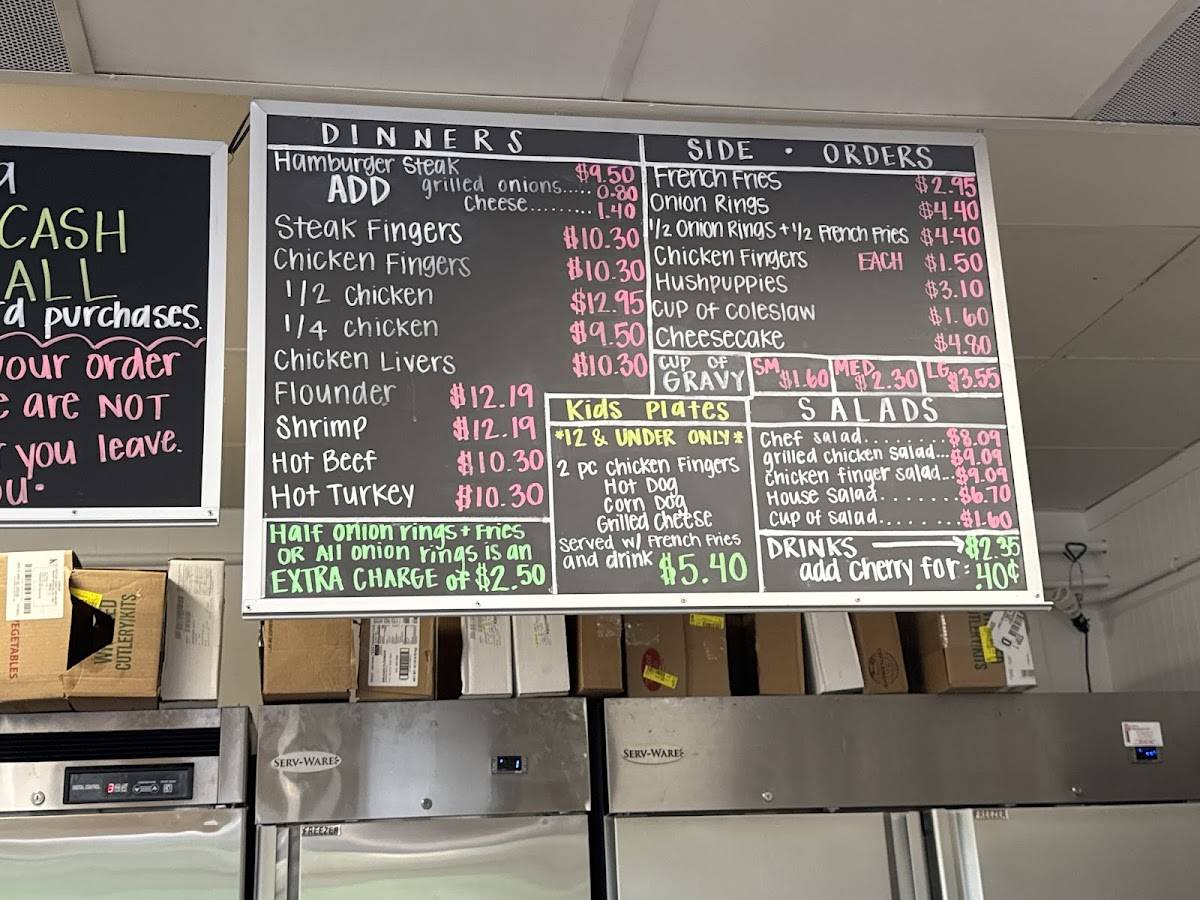 CASH
ALL
d purchases.
your order
e are NOT
you leave.
DINNERS
Hamburger Steak $9.50
ADD grilled onions..... 0.80
cheese......... 1.40
Steak Fingers $10.30
Chicken Fingers $10.30
1/2 chicken $12.95
1/4 chicken $9.50
Chicken Livers $10.30
Flounder $12.19
Shrimp $12.19
Hot Beef $10.30
Hot Turkey $10.30
Half onion rings + Fries
OR All onion rings is an
EXTRA CHARGE of $2.50
SIDE • ORDERS
French Fries $2.95
Onion Rings $4.40
1/2 Onion Rings + 1/2 French Fries $4.40
Chicken Fingers EACH $1.50
Hushpuppies $3.10
Cup of coleslaw $1.60
Cheesecake $4.80
CUP OF GRAVY SM $1.60 MED $2.30 LG $3.55
Kids Plates
*12 & UNDER ONLY*
2 pc chicken Fingers
Hot Dog
Corn Dog
Grilled Cheese
served w/ French Fries
and drink $5.40
SALADS
Chef salad........ $8.09
grilled chicken salad... $9.09
chicken finger salad... $9.09
House salad....... $6.70
cup of salad....... $1.60
DRINKS → $2.35
add cherry for: .40¢
VEGETABLES
CUTLERY KITS
SERV-WARE
SERV-WARE
FREEZER
FREEZER